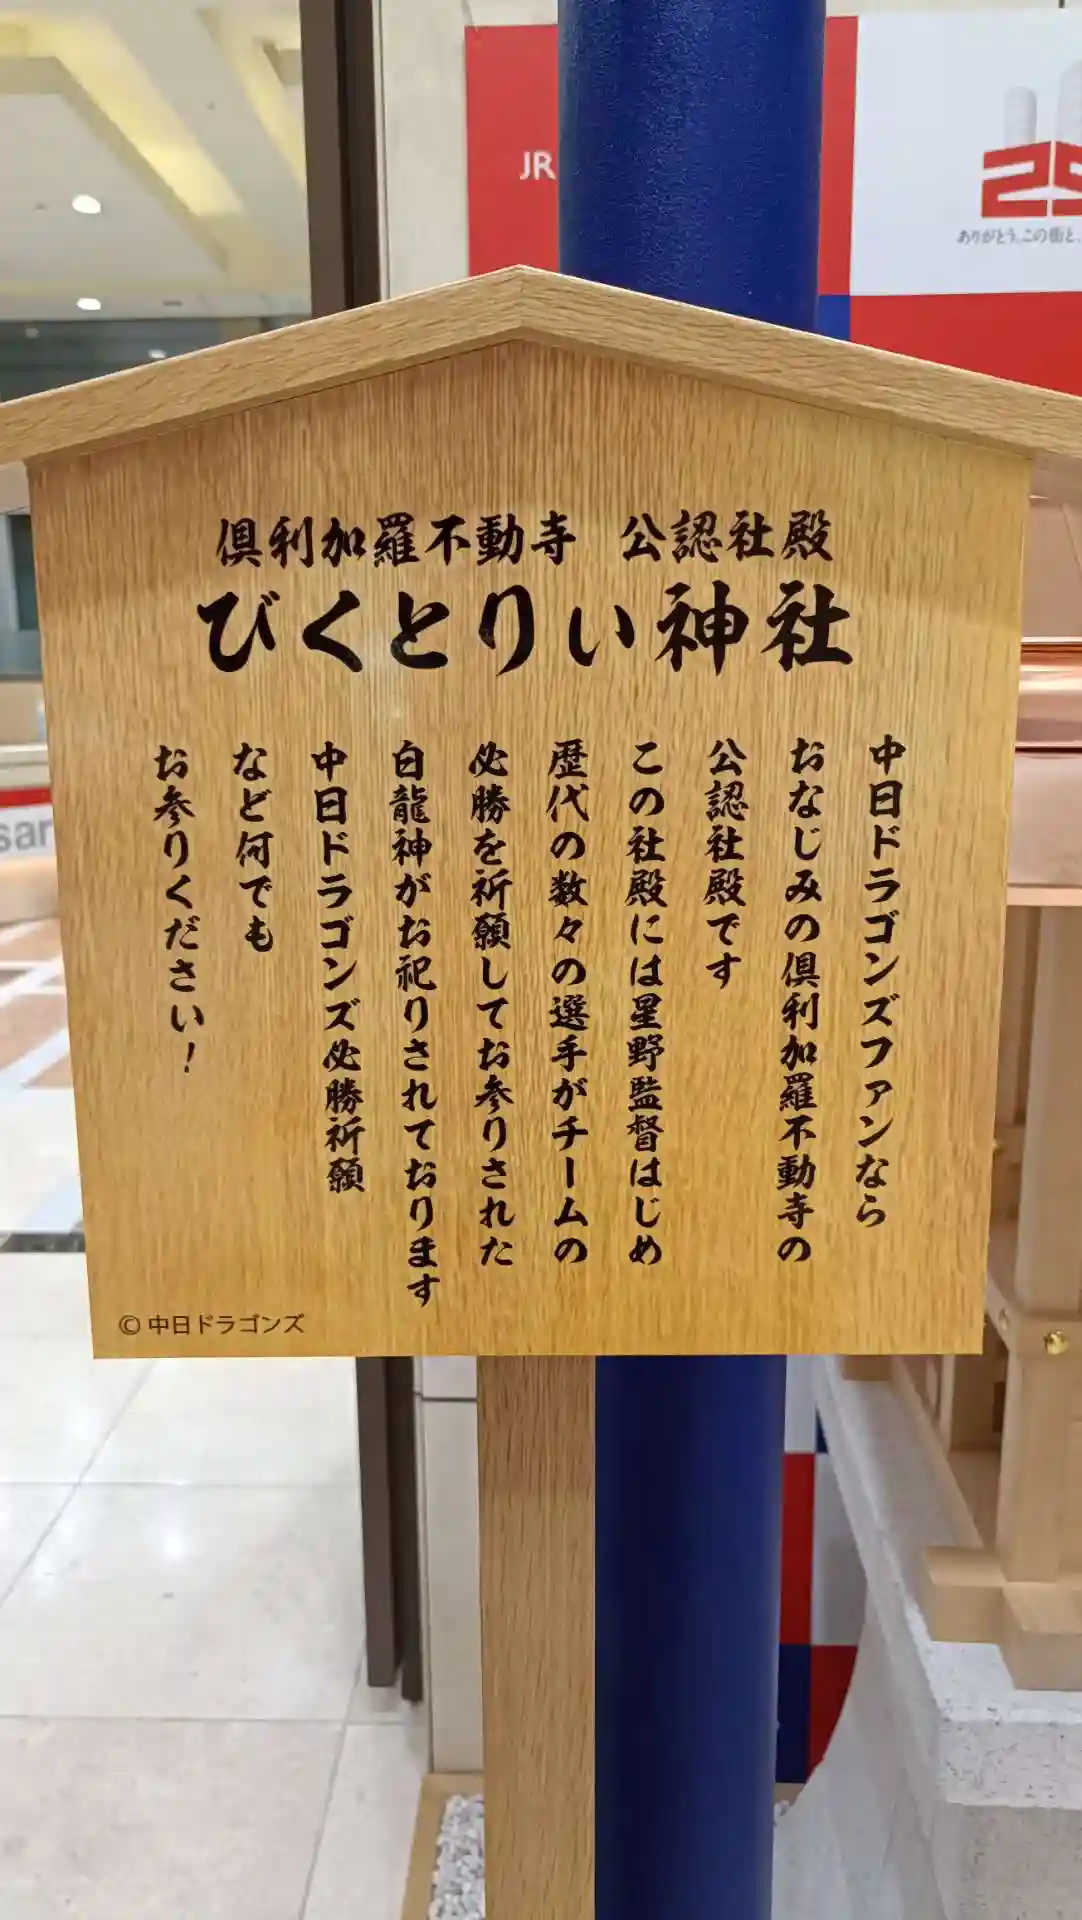 JR
25
ありがとう、この街と、
倶利加羅不動寺 公認社殿
びくとりぃ神社
中日ドラゴンズファンなら
おなじみの倶利加羅不動寺の
公認社殿です
この社殿には星野監督はじめ
歴代の数々の選手がチームの
必勝を祈願してお参りされた
白龍神がお祀りされております
中日ドラゴンズ必勝祈願
など何でも
お参りください！
© 中日ドラゴンズ